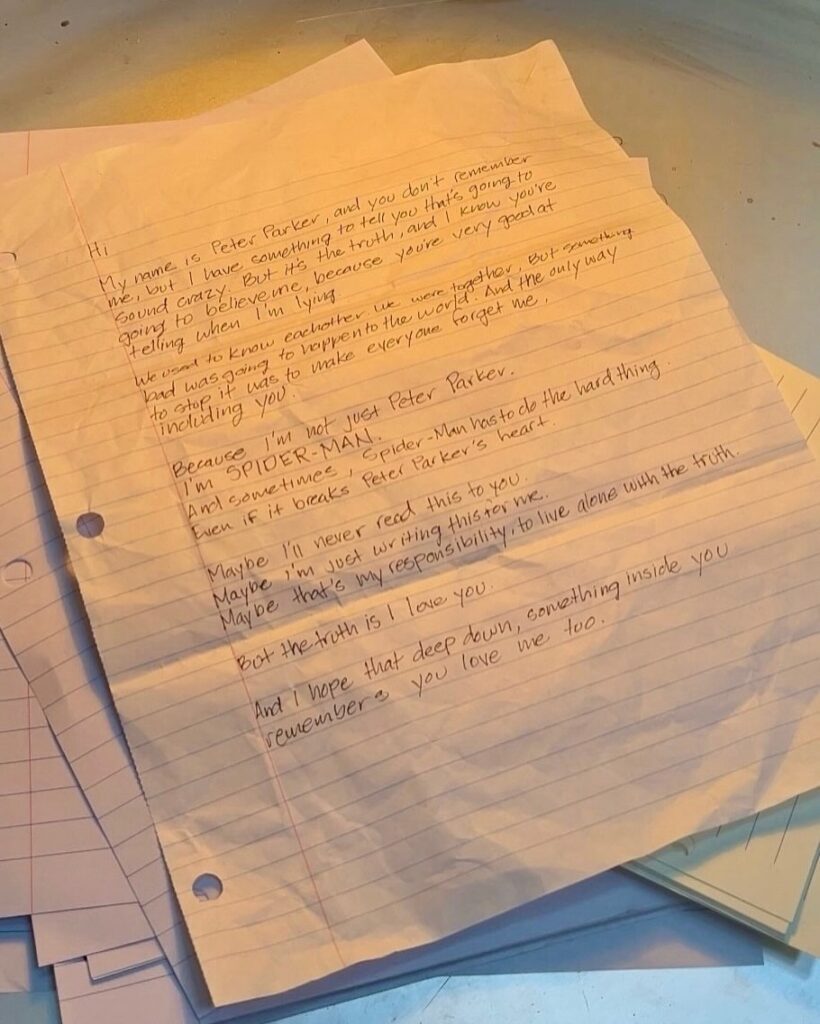 Hi
My name is Peter Parker, and you don't remember
me, but I have something to tell you that's going to
sound crazy. But it's the truth, and I know you're
going to believe me, because you're very good at
telling when I'm lying
We used to know eachother we were together, But something
bad was going to happen to the world. And the only way
to stop it was to make everyone forget me,
including you.
Because I'm not just Peter Parker.
I'm SPIDER-MAN.
And sometimes, Spider-Man has to do the hard thing.
Even if it breaks Peter Parker's heart.
Maybe I'll never read this to you.
Maybe I'm just writing this for me.
Maybe that's my responsibility, to live alone with the truth.
But the truth is I love you.
And I hope that deep down, something inside you
remembers you love me too.